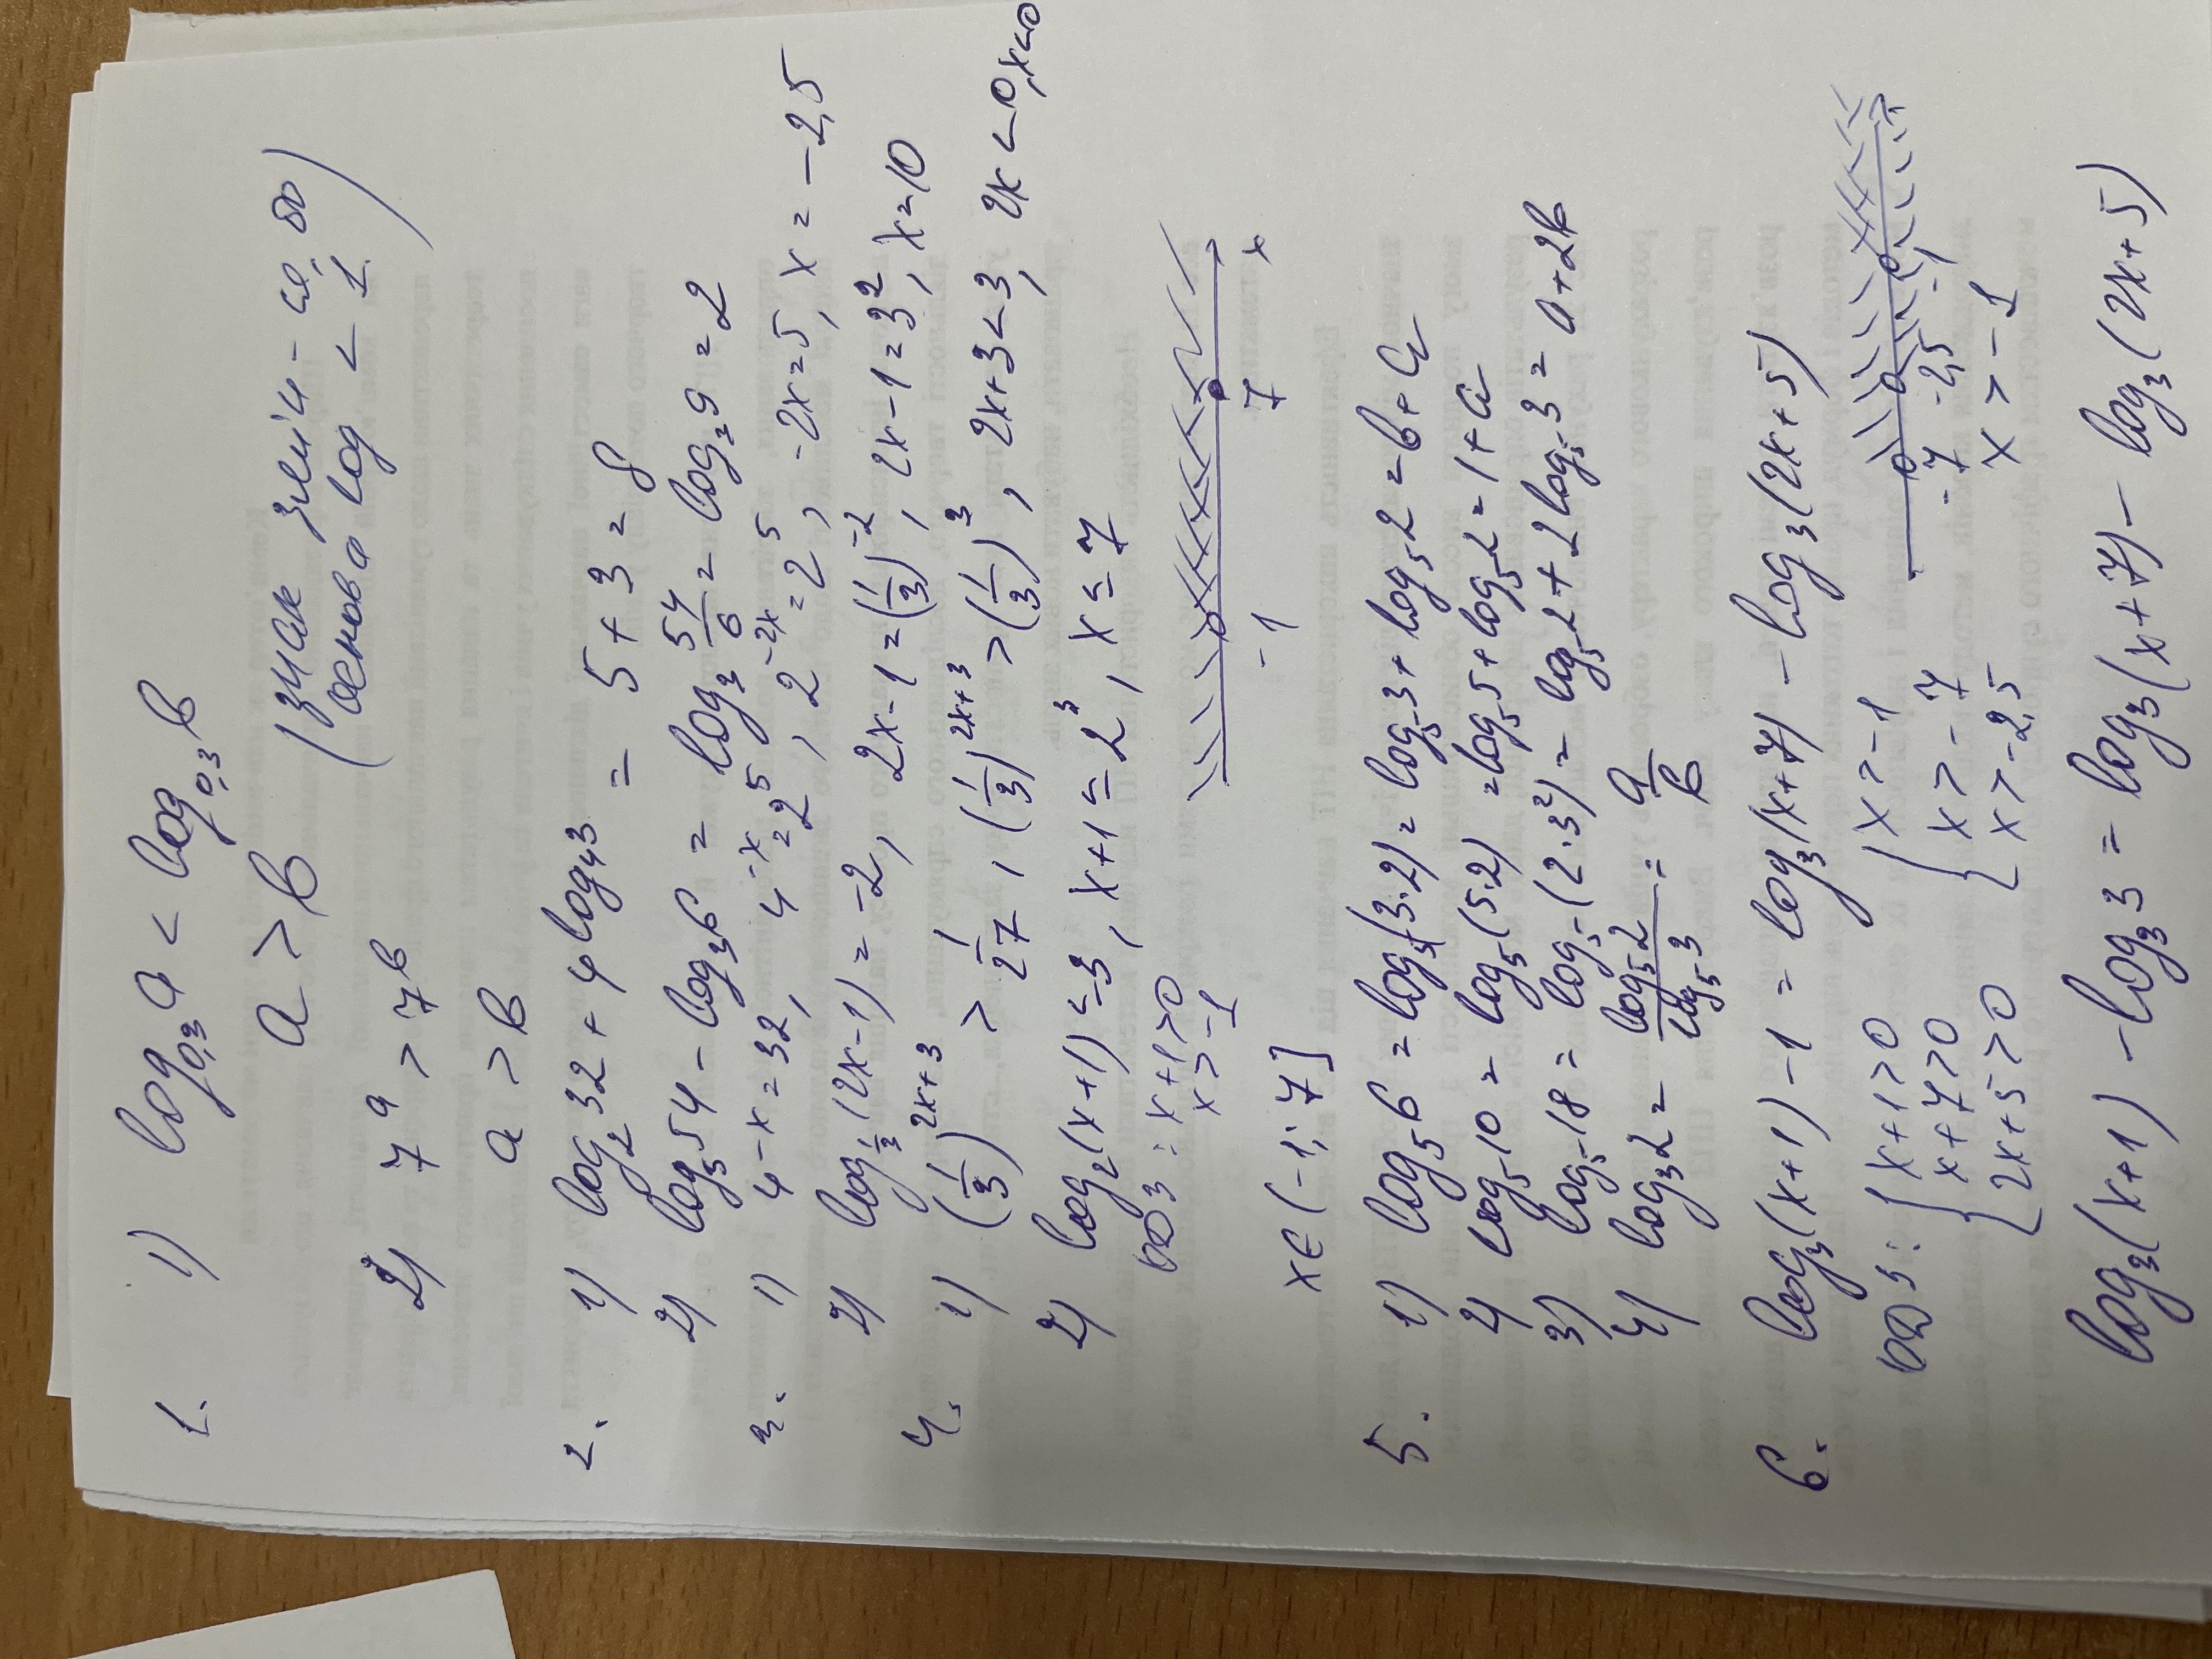 1. 1) log₀,₃ a < log₀,₃ b
a > b (знак змін-ся, бо
основа log < 1)
2) 7ᵃ > 7ᵇ
a > b
2. 1) log₂32 + 4^log₄3 = 5 + 3 = 8
2) log₃54 - log₃6 = log₃ 54/6 = log₃9 = 2
3. 1) 4^-x = 32, 4^-x = 2⁵, 2^-2x = 2⁵, -2x = 5, x = -2,5
2) log_1/3 (2x-1) = -2, 2x-1 = (1/3)^-2, 2x-1 = 3², x = 10
4. 1) (1/3)^2x+3 > 1/27, (1/3)^2x+3 > (1/3)³, 2x+3 < 3, 2x < 0, x < 0
2) log₂(x+1) ≤ 3, x+1 ≤ 2³, x ≤ 7
ОДЗ: x+1>0
x > -1
-1 7 x
x∈(-1; 7]
5. 1) log₅6 = log₅(3·2) = log₅3 + log₅2 = b + a
2) log₅10 = log₅(5·2) = log₅5 + log₅2 = 1 + a
3) log₅18 = log₅(2·3²) = log₅2 + 2log₅3 = a + 2b
4) log₃2 = log₅2/log₅3 = a/b
6. log₃(x+1) - 1 = log₃(x+7) - log₃(2x+5)
ОДЗ: { x+1>0 { x > -1
x+7>0 x > -7
2x+5>0 x > -2,5
-7 -2,5 -1 x
x > -1
log₃(x+1) - log₃3 = log₃(x+7) - log₃(2x+5)